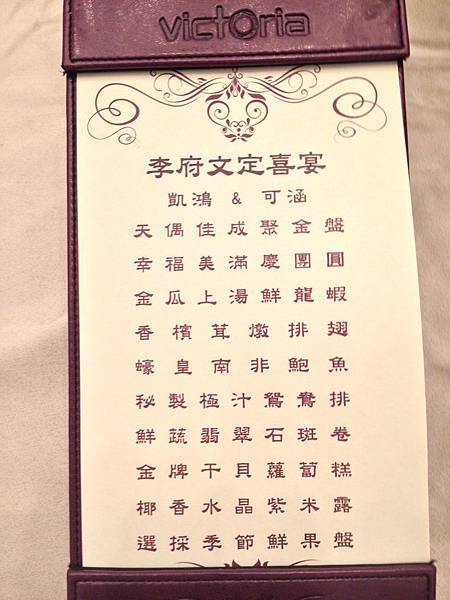 victoria
李府文定喜宴
凱鴻 & 可涵
天偶佳成聚金盤
幸福美滿慶團圓
金瓜上湯鮮龍蝦
香檳茸燉排翅
蠔皇南非鮑魚
秘製極汁鴛鴦排
鮮蔬翡翠石斑卷
金牌干貝蘿蔔糕
椰香水晶紫米露
選採季節鮮果盤